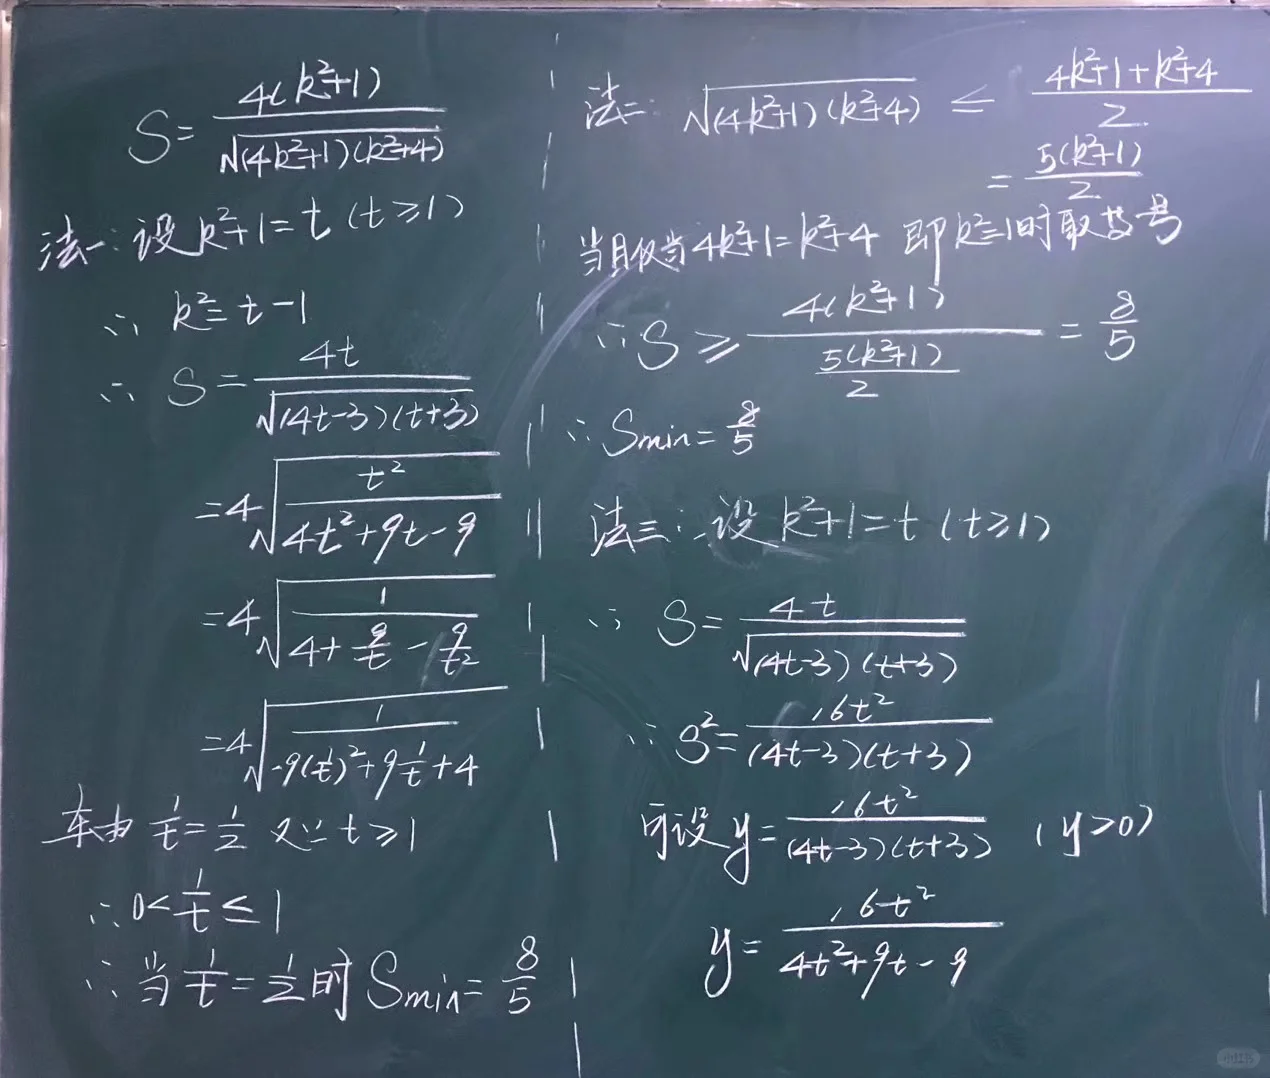 S = \frac{4(k²+1)}{\sqrt{(4k²+1)(k²+4)}}
法一: 设 k²+1=t (t≥1)
∴ k²=t-1
∴ S = \frac{4t}{\sqrt{(4t-3)(t+3)}}
=4\sqrt{\frac{t²}{4t²+9t-9}}
=4\sqrt{\frac{1}{4+\frac{9}{t}-\frac{9}{t²}}}
=4\sqrt{\frac{1}{-9(\frac{1}{t})²+9\frac{1}{t}+4}}
车由 \frac{1}{t}=\frac{1}{2} 又∵ t≥1
∴ 0<\frac{1}{t}≤1
∴ 当 \frac{1}{t}=\frac{1}{2} 时 Smin=\frac{8}{5}
法二: \sqrt{(4k²+1)(k²+4)} ≤ \frac{4k²+1+k²+4}{2}
= \frac{5(k²+1)}{2}
当且仅当 4k²+1=k²+4 即 k²=1时取等号
∴ S ≥ \frac{4(k²+1)}{\frac{5(k²+1)}{2}} = \frac{8}{5}
∴ Smin=\frac{8}{5}
法三: 设 k²+1=t (t≥1)
∴ S = \frac{4t}{\sqrt{(4t-3)(t+3)}}
∴ S²= \frac{16t²}{(4t-3)(t+3)}
可设 y= \frac{16t²}{(4t-3)(t+3)} (y>0)
y= \frac{16t²}{4t²+9t-9}
小红书